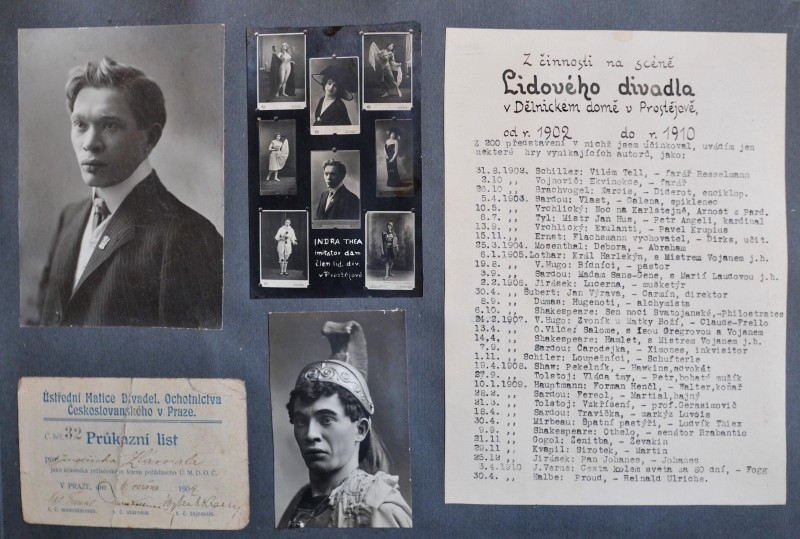 INDRA THEA
imitátor dam
člen lid. div.
v Prostějově
Ústřední Matice Divadel. Ochotnictva
Českoslovanského v Praze.
32
Průkazní list
jako účastníka
pořádaného Ú. M. D. O. Č.
V PRAZE, dne 190
t. č. t. č. t. č.
Z činnosti na scéně
Lidového divadla
v Dělnickem domě v Prostějově,
od r. 1902 do r. 1910
Z 200 představení v nichž jsem účinkoval, uvádím jen
některé hry vynikajících autorů, jako:
31.8.1902. Schiller: Vilém Tell, - farář Resselmann
2.10 ,, Vojnovič: Ekvinokce, - farář
26.10 ,, Brachvogel: Narcis, - Diderot, enciklop.
5.4.1903. Sardou: Vlast, - Galena, spiklenec
10.5. ,, Vrchlický: Noc na Karlštejně, Arnošt z Pard.
6.7. ,, Tyl: Mistr Jan Hus, - Petr Angeli, kardinal
13.9 ,, Vrchlický: Exulanti, - Pavel Krupius
15.11 ,, Ernst: Flachsmann vychovatel, - Dirks, učit.
25.3.1904. Mosenthal: Debora, - Abraham
6.1.1905. Lothar: Král Harlekýn, s Mistrem Vojanem j.h.
19.8. ,, V.Hugo: Bídníci, - pastor
3.9. ,, Sardou: Madam Sans-Gene, s Marií Laudovou j.h.
2.2.1906. Jirásek: Lucerna, - mušketýr
30.4. ,, Šubert: Jan Výrava, - Carmin, direktor
8.9. ,, Dumas: Hugenoti, - alchymista
6.10. ,, Shakespeare: Sen noci Svatojanské,-Philostrates
24.2.1907. V.Hugo: Zvoník u Matky Boží, - Claude-Frello
13.4. ,, O.Vilde: Salome, s Isou Gregrovou a Vojanem
14.4. ,, Shakespeare: Hamlet, s Mistrem Vojanem j.h.
7.9. ,, Sardou: Čarodejka, - Ximones, inkvisitor
1.11. ,, Schiler: Loupežníci, - Schufterle
19.4.1908. Shaw: Pekelník, - Hawkins,advokát
27.9. ,, Tolstoj: Vláda tmy, - Petr,bohatý mužík
10.1.1909. Hauptmann: Forman Henčl, - Walter,koňař
28.2. ,, Sardou: Fereol, - Martial,hajný
21.3. ,, Tolstoj: Vzkříšení, - prof.Gerasimovič
18.4. ,, Sardou: Travička, - markýz Luvois
30.4. ,, Mirbeau: Špatní pastýři, - Ludvík Thiex
9.9. ,, Shakespeare: Othelo, - senátor Brabantio
21.11 ,, Gogol: Ženitba, - Ževakin
28.11 ,, Kvapil: Sirotek, - Martin
25.12 ,, Jirásek: Pan Johanes, - Johanes
3.4.1910 J.Verne: Cesta kolem sveta za 80 dní, - Fogg
30.4. ,, Halbe: Proud, - Reinald Ulrichs.